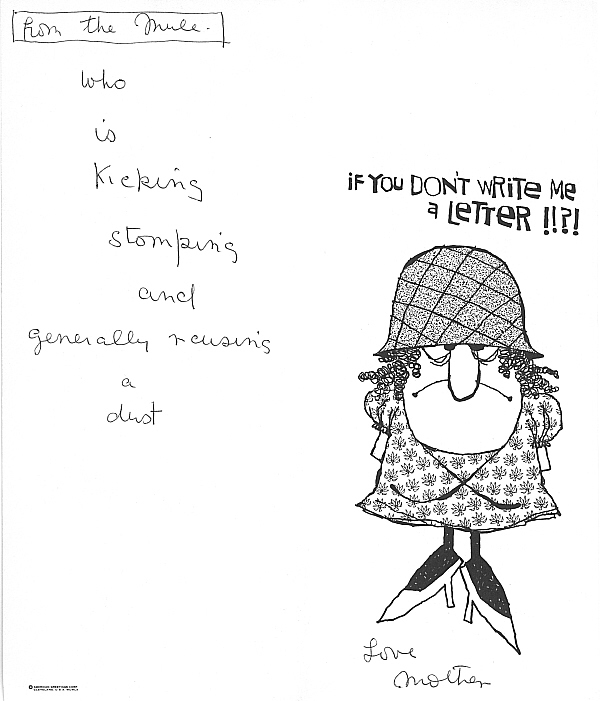 from the Mule.
who
is
Kicking
stomping
and
generally raising
a
dust
IF YOU DON'T WRITE ME
a LETTER !!?!
Love
Mother
© AMERICAN GREETINGS CORP.
CLEVELAND, U.S.A.